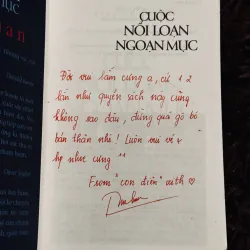 CUỘC
NỔI LOẠN
NGOẠN MỤC
Đời vui lắm cưng ạ, cứ 12
bản như quyển sách này cũng
không sao đâu, đừng quá gò bó
bản thân nhé! Luôn vui vẻ
hp như cưng
From "con điên" with ♡
MỤC